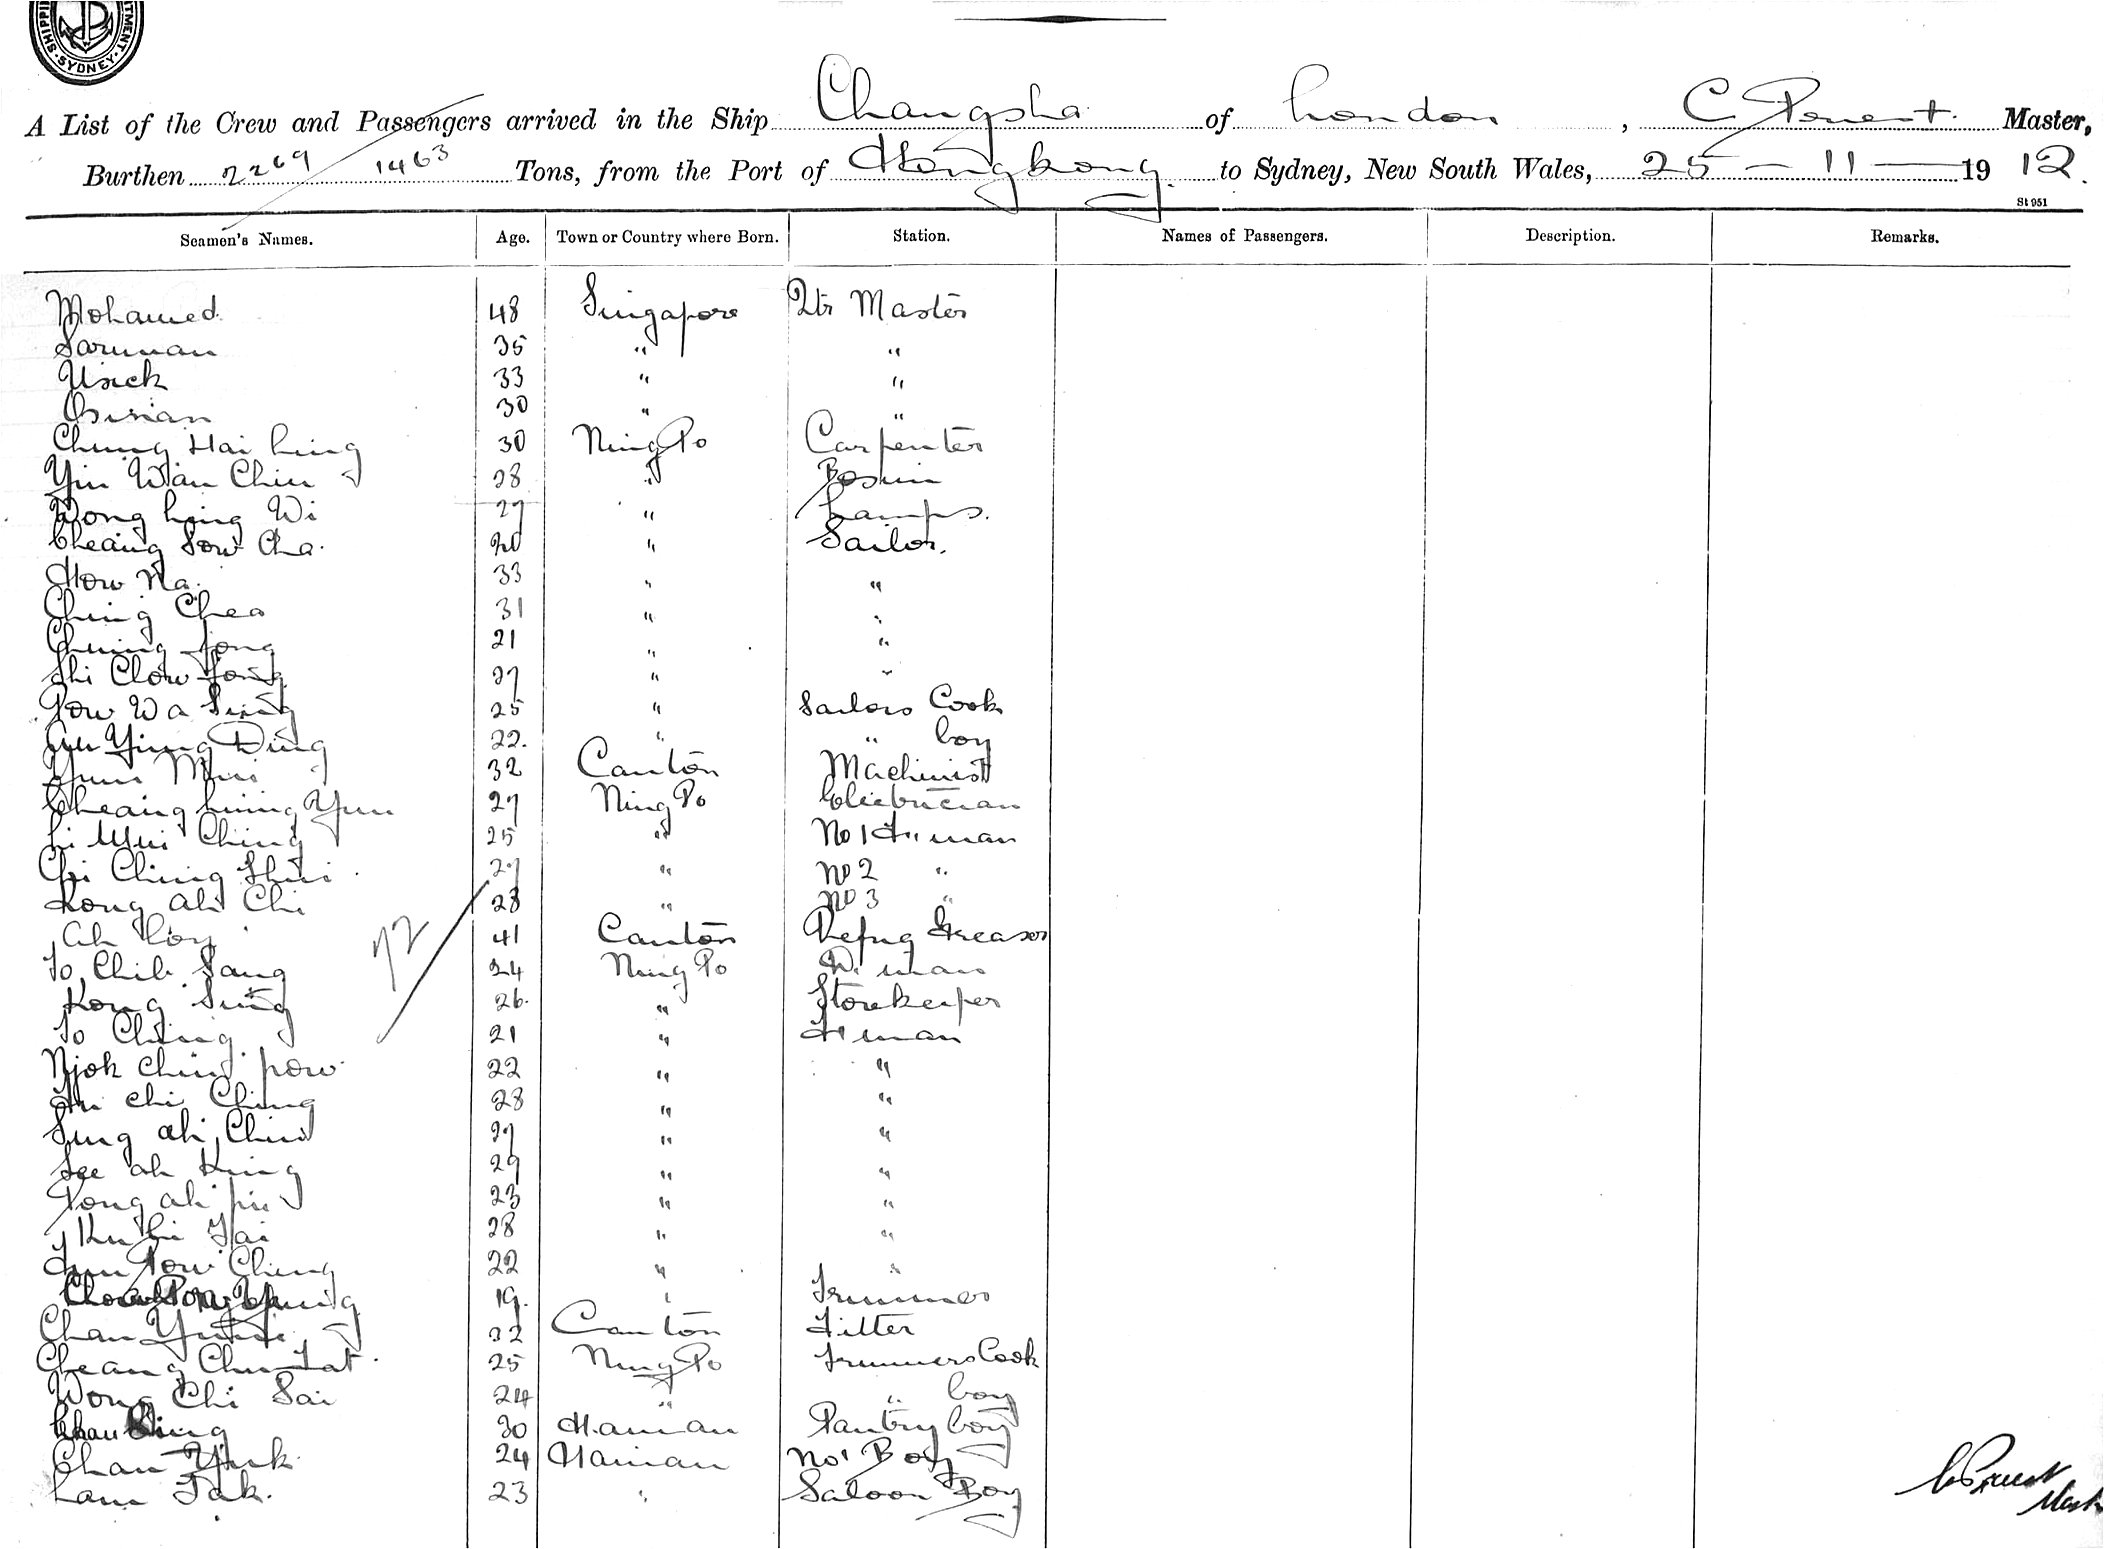 SHIPPING TMENT. SYDNEY.
A List of the Crew and Passengers arrived in the Ship Changsha of London, C. Master,
Burthen 2269 / 1463 Tons, from the Port of Hongkong to Sydney, New South Wales, 25 - 11 - 1912.
St 951
Seamen's Names. Age. Town or Country where Born. Station. Names of Passengers. Description. Remarks.
Mohamed 48 Singapore Qtr Master
Sarunan 35 " "
Usick 33 " "
30 " "
Chung Hai Ling 30 Ning Po Carpenter
Yin Wan Chin 28 " Bosun
Wong Ling Wi 27 " Lamps.
Cheang Sow Cha. 20 " Sailor.
How Na. 33 " "
Ching Chea 31 " "
Chung Fong 21 " "
Shi Chow Fong 27 " "
Pow Wa Sing 25 " Sailors Cook
Ying Ding 22. " " boy
Yun Mui 32 Canton Machinist
Cheang Yun 27 Ning Po Electrician
Li Mui Ching 25 " No 1 Fman
Chi Ching Shui 27 " No 2 "
Kong ah Chi 28 " No 3 "
Ah 41 Canton Refrg Greaser
To Chih Sang 24 Ning Po D. man
Kong Sing 26. " Storekeeper
To Ching 21 " Fman
72
Njok Ching pow 22 " "
chi Ching 28 " "
Sung ah Chin 27 " "
See ah King 29 " "
Tong ah 23 " "
Ku Li Tai 28 " "
Pow Ching 22 " "
19. " Trimmer
Chan 32 Canton Fitter
Cheang Chu Fat. 25 Ning Po Trimmers Cook
Wong Chi Sai 24 " " boy
Chan Ching 30 Hainan Pantry boy
Chan Yuk 24 Hainan No 1 Boy
Lam Tak. 23 " Saloon Boy